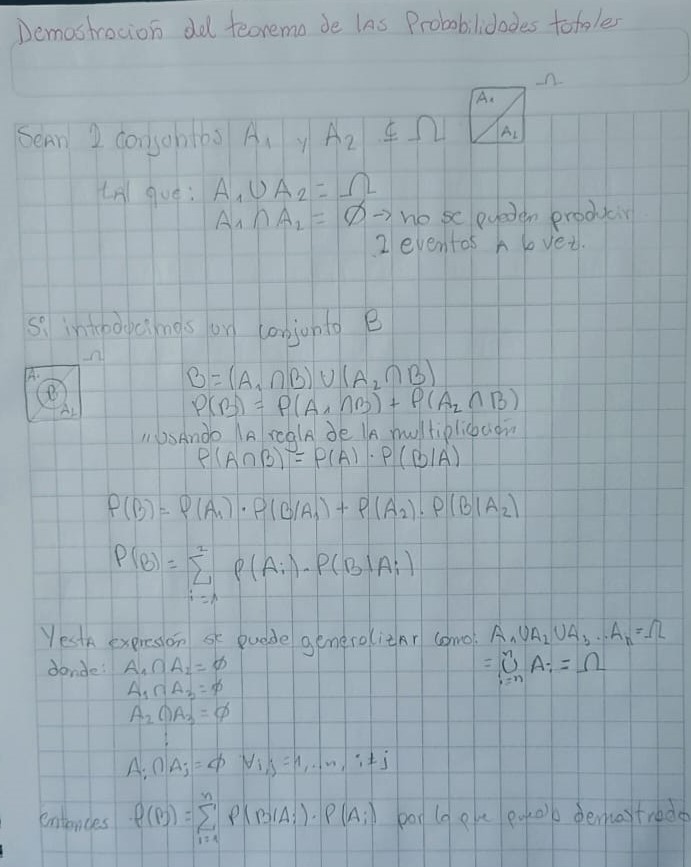 Demostración del teorema de las Probabilidades totales
Ω
A₁
A₂
Sean 2 conjuntos A₁ y A₂ ⊆ Ω
tal que: A₁∪A₂ = Ω
A₁∩A₂ = ∅ → no se pueden producir
2 eventos a la vez.
Si introducimos un conjunto B
Ω
A₁
B
A₂
B = (A₁∩B)∪(A₂∩B)
P(B) = P(A₁∩B) + P(A₂∩B)
"usando la regla de la multiplicación
P(A∩B) = P(A) · P(B/A)
P(B) = P(A₁) · P(B/A₁) + P(A₂) · P(B/A₂)
P(B) = ∑²ᵢ₌₁ P(Aᵢ) · P(B/Aᵢ)
Y esta expresión se puede generalizar como: A₁∪A₂∪A₃...Aₙ = Ω
donde: A₁∩A₂ = ∅ = ⋃ⁿᵢ₌ₙ Aᵢ = Ω
A₁∩A₃ = ∅
A₂∩A₃ = ∅
⋮
Aᵢ∩Aⱼ = ∅ ∀i,j = 1,...n, i≠j
entonces P(B) = ∑ⁿᵢ₌₁ P(B/Aᵢ) · P(Aᵢ) por lo que queda demostrado